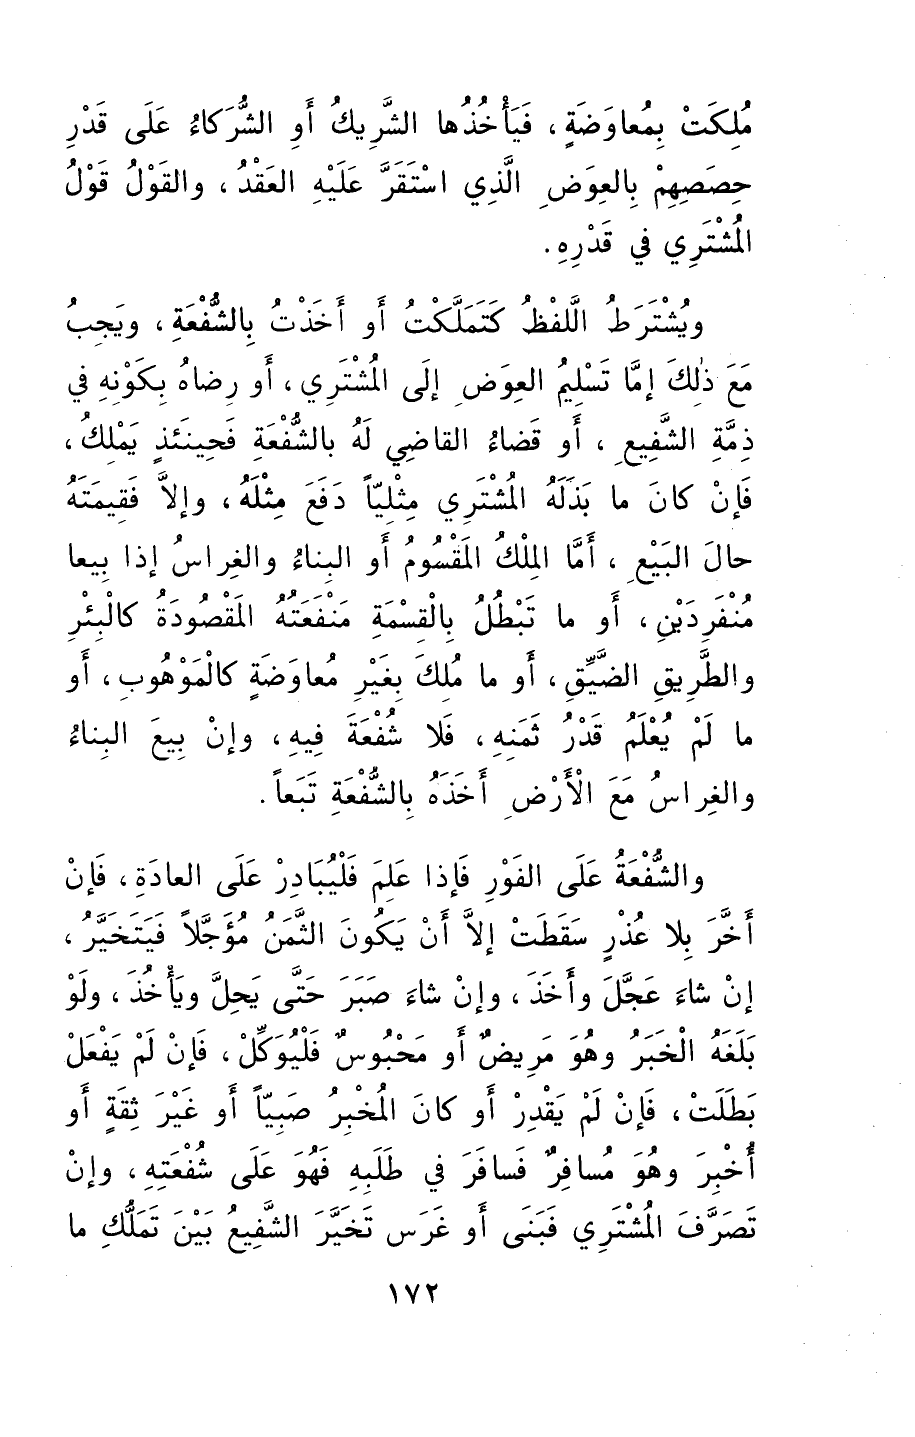 مُلِكَتْ بِمُعاوَضَةٍ، فَيَأْخُذُها الشَّرِيكُ أَوِ الشُّرَكاءُ عَلَى قَدْرِ
حِصَصِهِمْ بِالعِوَضِ الَّذِي اسْتَقَرَّ عَلَيْهِ العَقْدُ، والقَوْلُ قَوْلُ
المُشْتَرِي في قَدْرِهِ.
ويُشْتَرَطُ اللَّفْظُ كَتَمَلَّكْتُ أَو أَخَذْتُ بِالشُّفْعَةِ، ويَجِبُ
مَعَ ذٰلِكَ إمَّا تَسْلِيمُ العِوَضِ إلَى المُشْتَرِي، أَو رِضاهُ بِكَوْنِهِ في
ذِمَّةِ الشَّفِيعِ، أَو قَضاءُ القاضِي لَهُ بالشُّفْعَةِ فَحِينَئذٍ يَمْلِكُ،
فَإنْ كانَ ما بَذَلَهُ المُشْتَرِي مِثْلِيّاً دَفَعَ مِثْلَهُ، وإلاَّ فَقِيمَتَهُ
حالَ البَيْعِ، أَمَّا المِلْكُ المَقْسُومُ أَو البِناءُ والغِراسُ إذا بِيعا
مُنْفَرِدَيْنِ، أَو ما تَبْطُلُ بِالْقِسْمَةِ مَنْفَعَتُهُ المَقْصُودَةُ كالْبِئْرِ
والطَّرِيقِ الضَّيِّقِ، أَو ما مُلِكَ بِغَيْرِ مُعاوَضَةٍ كالْمَوْهُوبِ، أَو
ما لَمْ يُعْلَمْ قَدْرُ ثَمَنِهِ، فَلا شُفْعَةَ فِيهِ، وإنْ بِيعَ البِناءُ
والغِراسُ مَعَ الْأَرْضِ أَخَذَهُ بِالشُّفْعَةِ تَبَعاً.
والشُّفْعَةُ عَلَى الفَوْرِ فَإذا عَلِمَ فَلْيُبَادِرْ عَلَى العادَةِ، فَإنْ
أَخَّرَ بِلا عُذْرٍ سَقَطَتْ إلاَّ أَنْ يَكُونَ الثَّمَنُ مُؤَجَّلاً فَيَتَخَيَّرُ،
إنْ شاءَ عَجَّلَ وأَخَذَ، وإنْ شاءَ صَبَرَ حَتَّى يَحِلَّ ويَأْخُذَ، ولَوْ
بَلَغَهُ الْخَبَرُ وهُوَ مَرِيضٌ أَو مَحْبُوسٌ فَلْيُوَكِّلْ، فَإنْ لَمْ يَفْعَلْ
بَطَلَتْ، فَإنْ لَمْ يَقْدِرْ أَو كانَ المُخْبِرُ صَبِيّاً أَو غَيْرَ ثِقَةٍ أَو
أُخْبِرَ وهُوَ مُسافِرٌ فَسافَرَ في طَلَبِهِ فَهُوَ عَلَى شُفْعَتِهِ، وإنْ
تَصَرَّفَ المُشْتَرِي فَبَنَى أَو غَرَسَ تَخَيَّرَ الشَّفِيعُ بَيْنَ تَمَلُّكِ ما
١٧٢